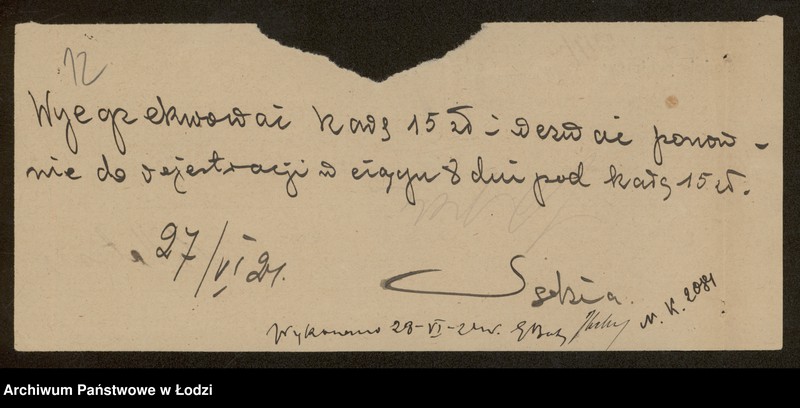 12
Wyegzekwować karę 15 zł i wezwać ponow-
nie do rejestracji w ciągu 8 dni pod karą 15 zł.
27/VI 21.
Wykonano 28-VI-
N. K. 2081
Archiwum Państwowe w Łodzi